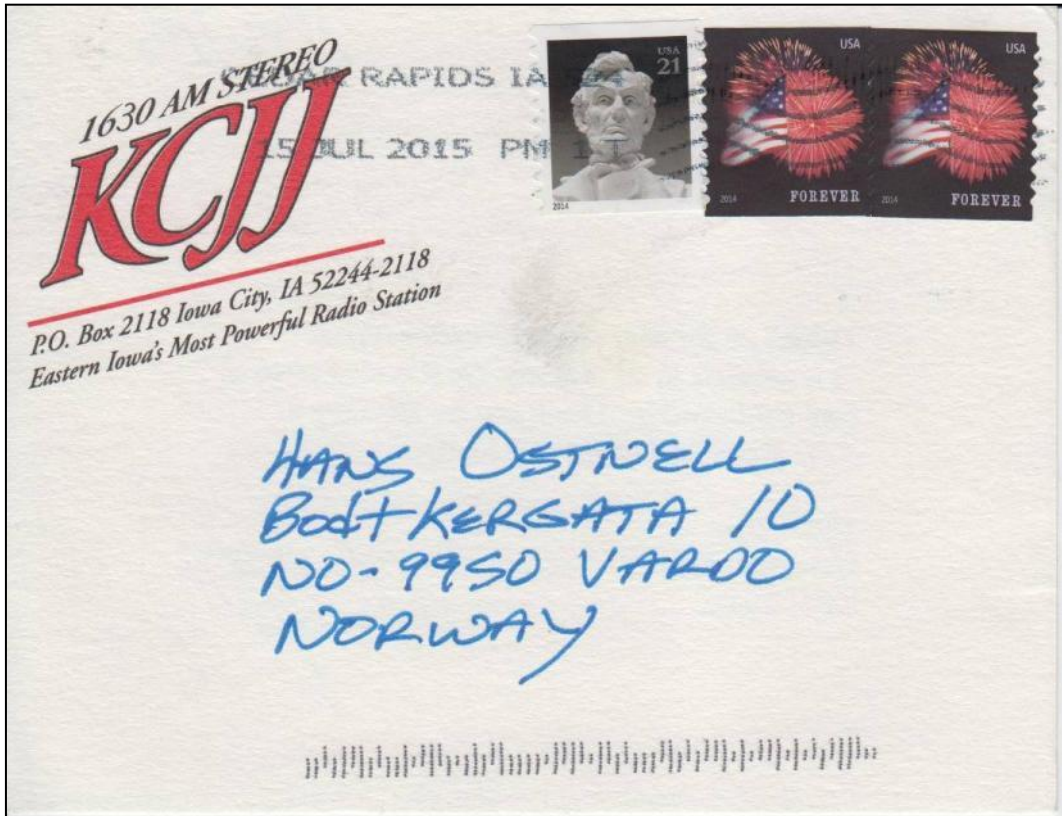 1630 AM STEREO
KCJJ
P.O. Box 2118 Iowa City, IA 52244-2118
Eastern Iowa's Most Powerful Radio Station
RAPIDS IA
15 JUL 2015 PM
USA
21
2014
USA
FOREVER
2014
USA
FOREVER
2014
HANS OSTNELL
BodtKERGATA 10
NO-9950 VARDO
NORWAY